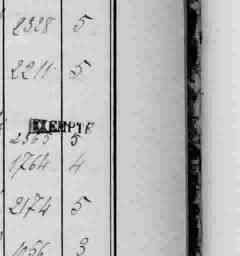 2328 5
2211 5
EXEMPTE
2365 5
1764 4
2174 5
1056 3